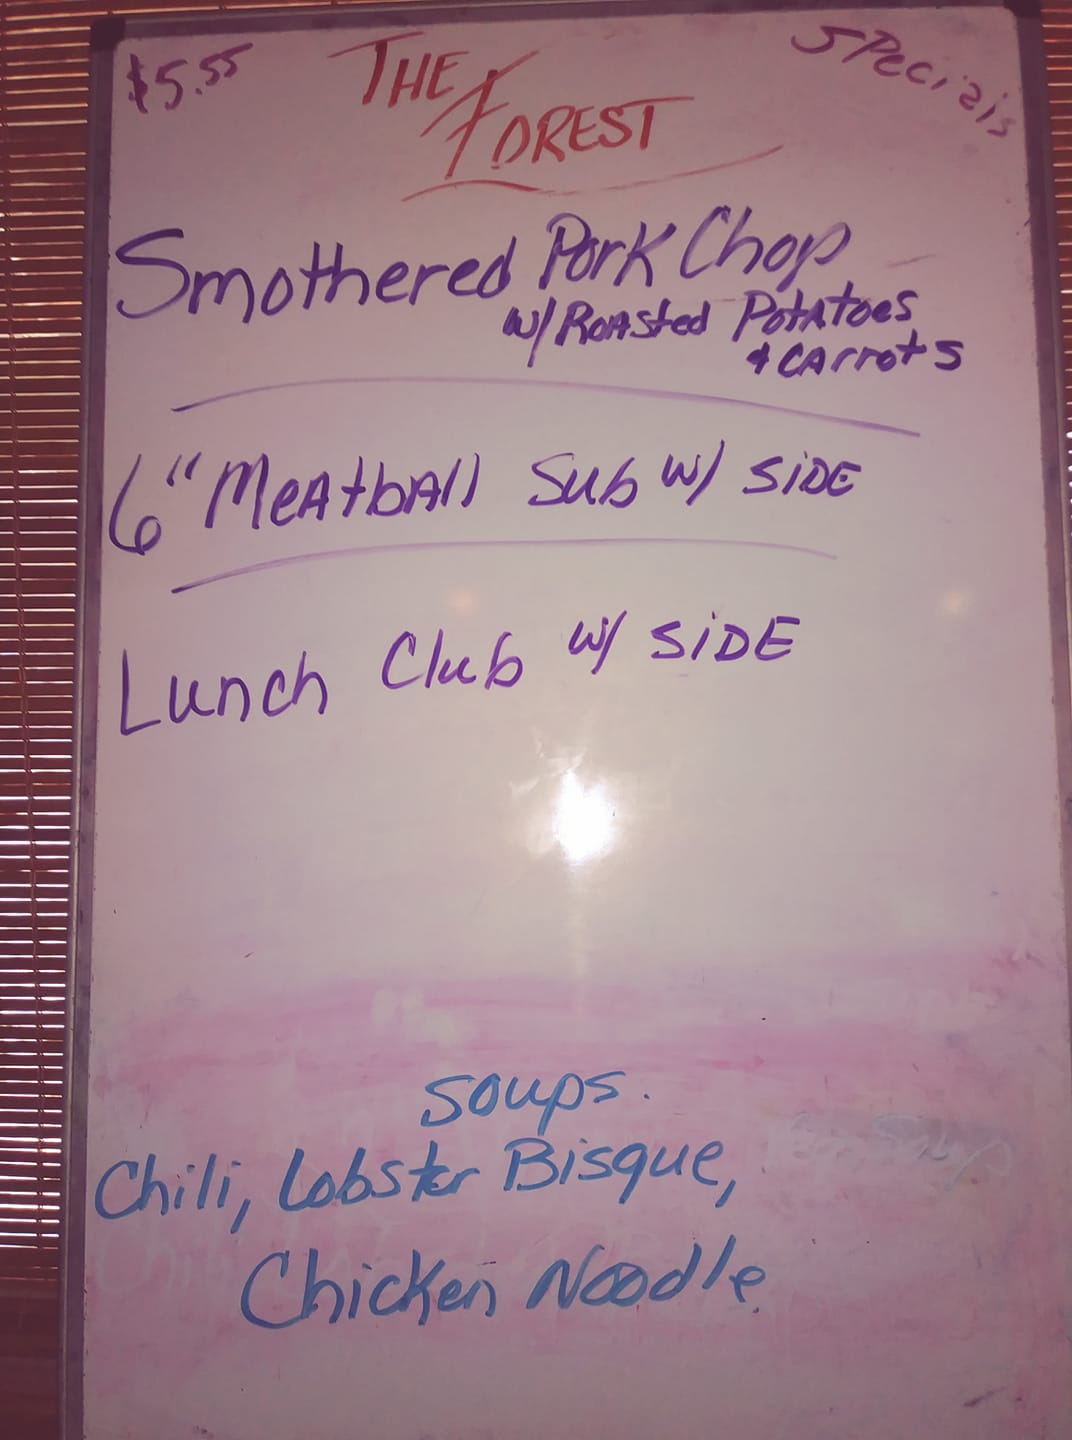 $5.55
THE
FOREST
Specials
Smothered Pork Chop
w/ Roasted Potatoes
& Carrots
6" Meatball Sub w/ SiDE
Lunch Club w/ SiDE
Soups.
Chili, Lobster Bisque,
Chicken Noodle